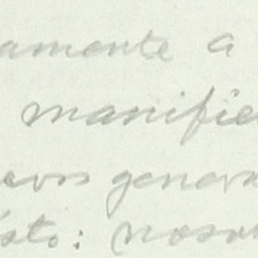 amente a
manifie
evos genera
ésto: nosot